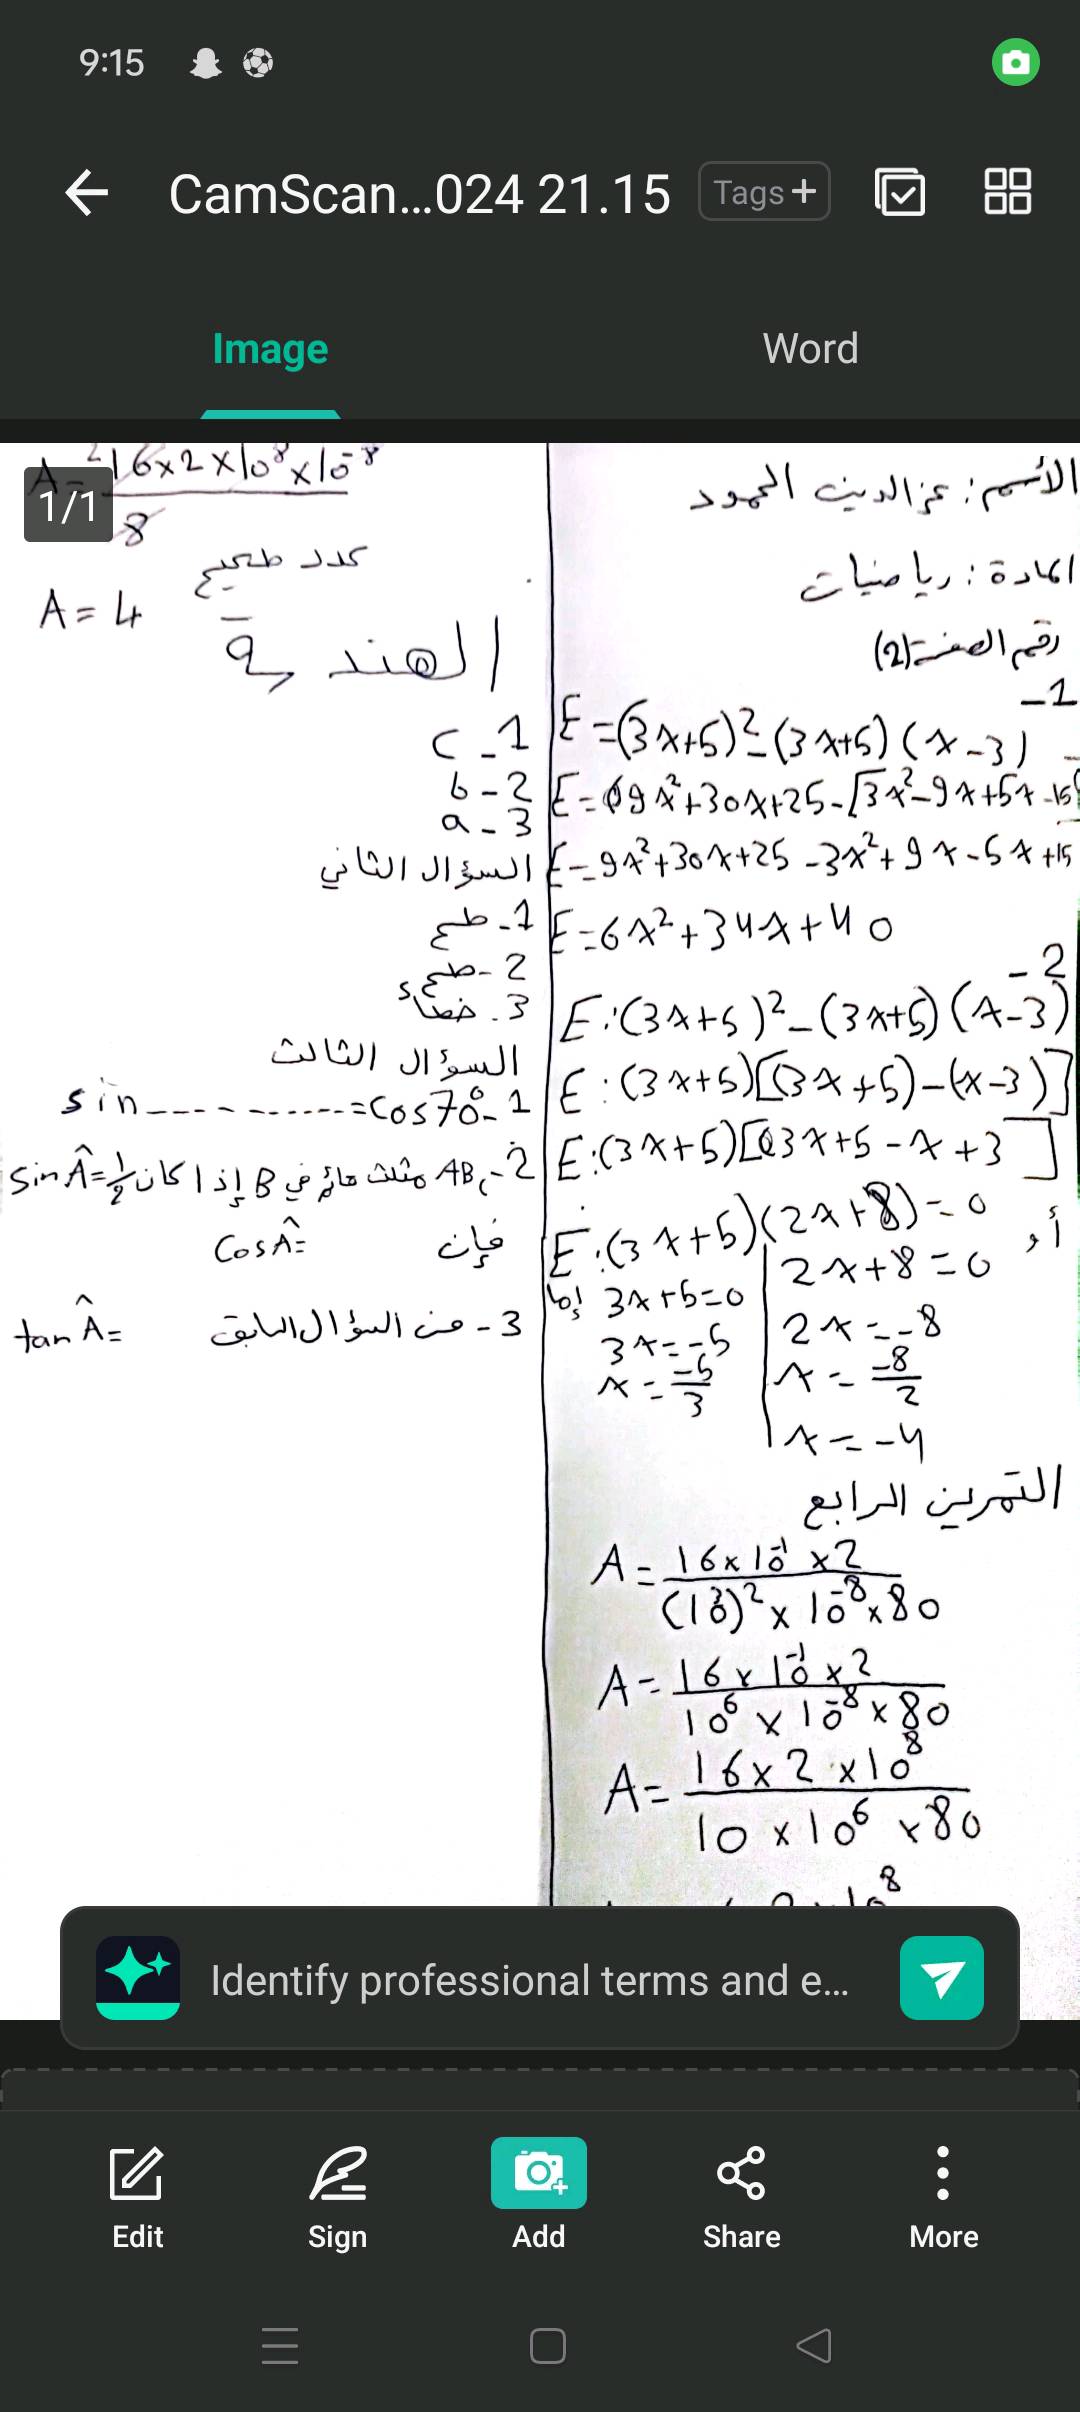 9:15
CamScan...024 21.15
Tags+
Image
Word
1/1
الأسم: عز الدين الحمود
المادة: رياضيات
رقم الصفحة (2)
1-
E=(3x+5)²-(3x+5)(x-3)
E=9x²+30x+25-[3x²-9x+5x-15
E=9x²+30x+25-3x²+9x-5x+15
E=6x²+34x+40
2-
E:(3x+5)²-(3x+5)(x-3)
E:(3x+5)[(3x+5)-(x-3)]
E:(3x+5)[3x+5-x+3]
E:(3x+5)(2x+8)=0
إما 3x+5=0
3x=-5
x=-5/3
أو
2x+8=0
2x=-8
x=-8/2
x=-4
التمرين الرابع
A=16×10⁻¹×2/(10³)²×10⁻⁸×80
A=16×10⁻¹×2/10⁶×10⁻⁸×80
A=16×2×10⁸/10×10⁶×80
A=16×2×10⁸×10⁻⁸/8
A=4 عدد طبيعي
الهندسة
1- c
2- b
3- a
السؤال الثاني
1- صح
2- صح
3. خطاء
السؤال الثالث
1- sin............=cos70°
2- ABc مثلث قائم في B إذا كان sinÂ=1/2
فإن cosÂ=
3- من السؤال السابق tanÂ=
Identify professional terms and e...
Edit
Sign
Add
Share
More